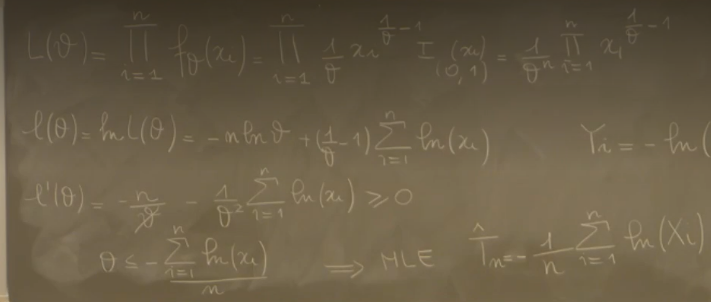 L(θ) = ∏_{i=1}^{n} f_θ(x_i) = ∏_{i=1}^{n} 1/θ x_i^{1/θ - 1} I_{(0,1)}(x_i) = 1/θ^n ∏_{i=1}^{n} x_i^{1/θ - 1}
l(θ) = ln L(θ) = -n ln θ + (1/θ - 1) ∑_{i=1}^{n} ln(x_i) Y_i = - ln(
l'(θ) = - n/θ - 1/θ² ∑_{i=1}^{n} ln(x_i) ⩾ 0
θ ≤ - ∑_{i=1}^{n} ln(x_i) / n ⟹ MLE T̂_n = - 1/n ∑_{i=1}^{n} ln(X_i)